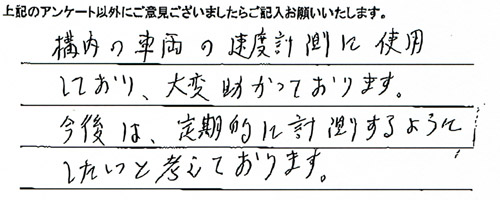 上記のアンケート以外にご意見ございましたらご記入お願いいたします。
構内の車両の速度計測に使用
しており、大変助かっております。
今後は、定期的に計測するように
したいと考えております。